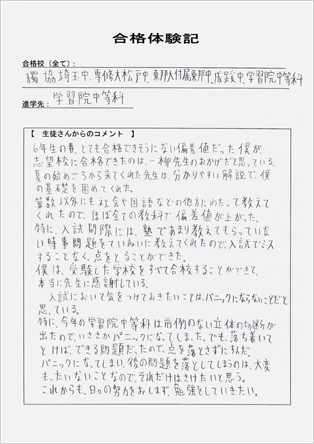 合格体験記
合格校（全て）：
獨協埼玉中、専修大松戸中、東邦大付属東邦中、成蹊中、学習院中等科
学習院中等科
進学先：
【 生徒さんからのコメント 】
6年生の春、とても合格できそうにない偏差値だった僕が
志望校に合格できたのは、一柳先生のおかげだと思っている。
夏の始めごろから来てくれた先生は、分かりやすい解説で、僕
の基礎を固めてくれた。
算数以外にも社会や国語などの他方にわたって教えて
くれたので、ほぼ全ての教科で偏差値が上がった。
特に、入試間際には、塾であまり教えてもらっていな
い時事問題をていねいに教えてくれたので、入試でミス
することなく、点をとることができた。
僕は、受験した学校をすべて合格することができて、
本当に先生に感謝している。
入試において気をつけておきたいことは、パニックにならないことだと
思っている。
特に、今年の学習院中等科は前例のない立体の切断が
出たので、いささかパニックになってしまった。でも、落ち着いて
とけば、できる問題だったので、点を落とさずにすんだ。
パニックになってしまい、後の問題を落としてしまうのは、大変
もったいないことなので、それだけはさけたいと思う。
これからも、日々の努力をおしまず、勉強をしていきたい。